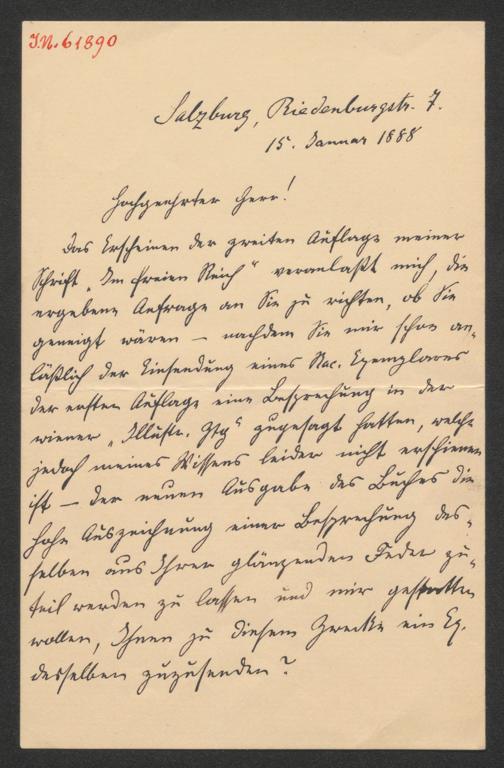 I.N. 61890
Salzburg, Riedenburgstr. 7.
15. Januar 1888
Hochgeehrter Herr!
Das Erscheinen der zweiten Auflage meiner
Schrift „Im freien Reich“ veranlaßt mich, die
ergebene Anfrage an Sie zu richten, ob Sie
geneigt wären – nachdem Sie mir schon an-
läßlich der Einsendung eines Rec. Exemplares
der ersten Auflage eine Besprechung in der
wiener „Illustr. Ztg“ zugesagt hatten, welche
jedoch meines Wissens leider nicht erschienen
ist – der neuen Ausgabe des Buches die
hohe Auszeichnung einer Besprechung des-
selben aus Ihrer glänzenden Feder zu-
teil werden zu lassen und mir gestatten
wollen, Ihnen zu diesem Zwecke ein Ex.
desselben zuzusenden?